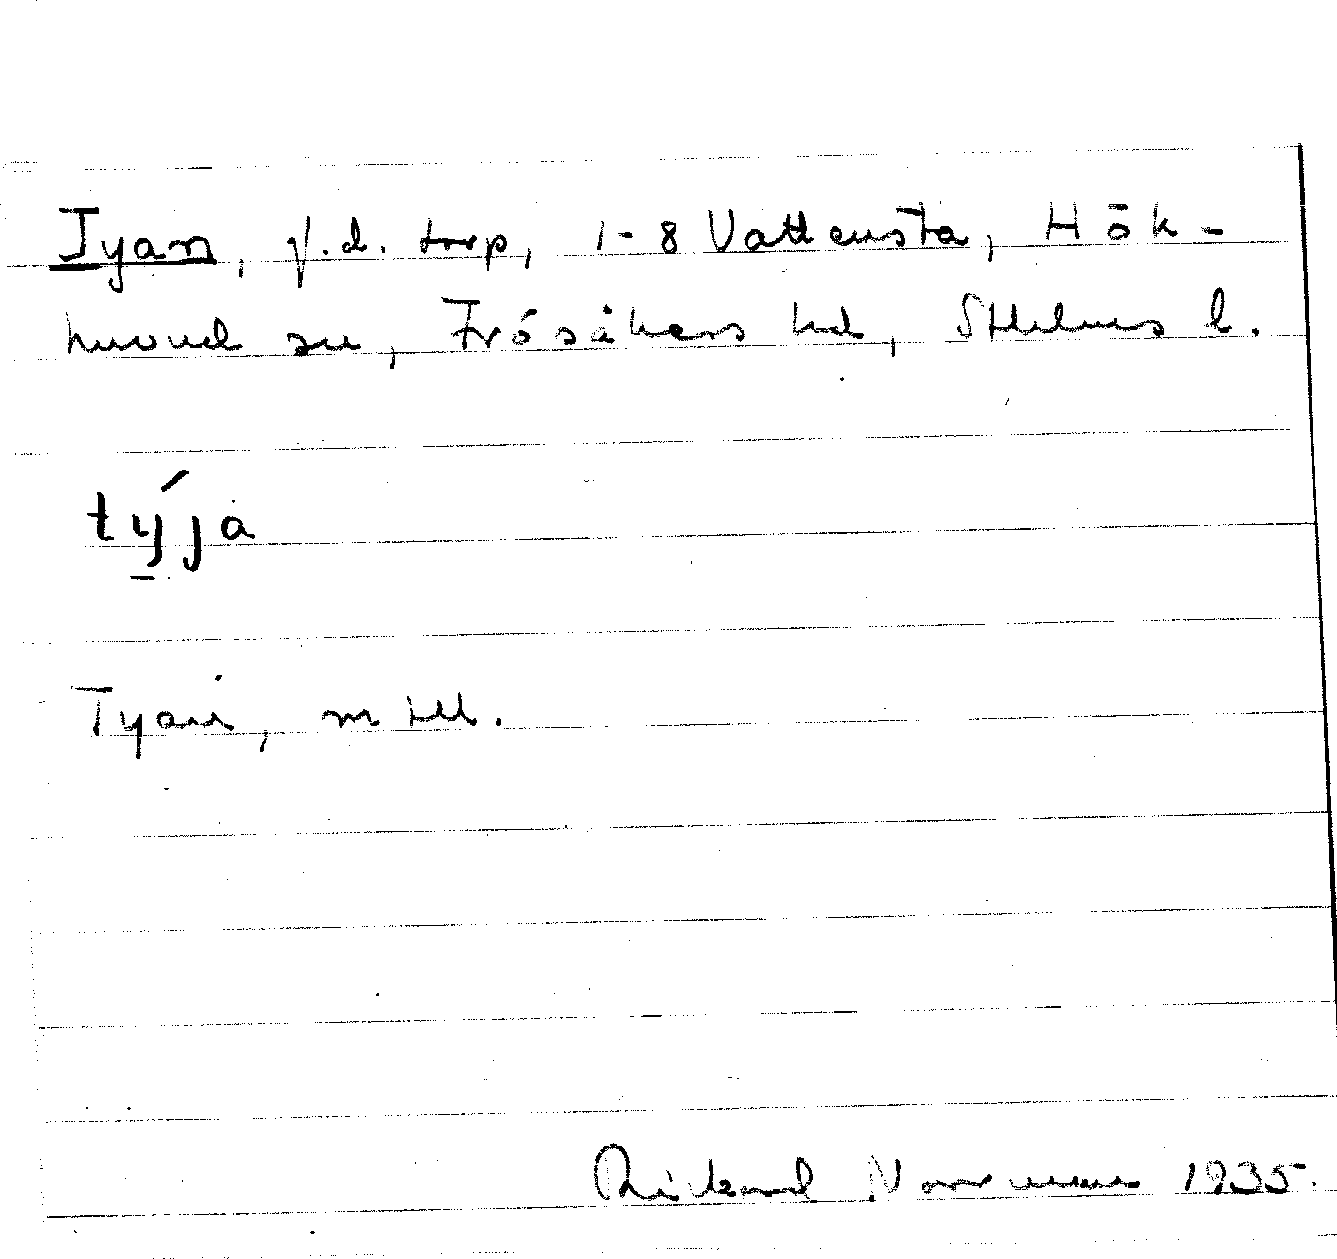 Tyan, f.d. torp, 1-8 Vattensta, Hök-
huvud sn, Frösåkers hd, Sthlms l.
tý̱ja
Tyan, mtll.
Rickard Norrman 1935.